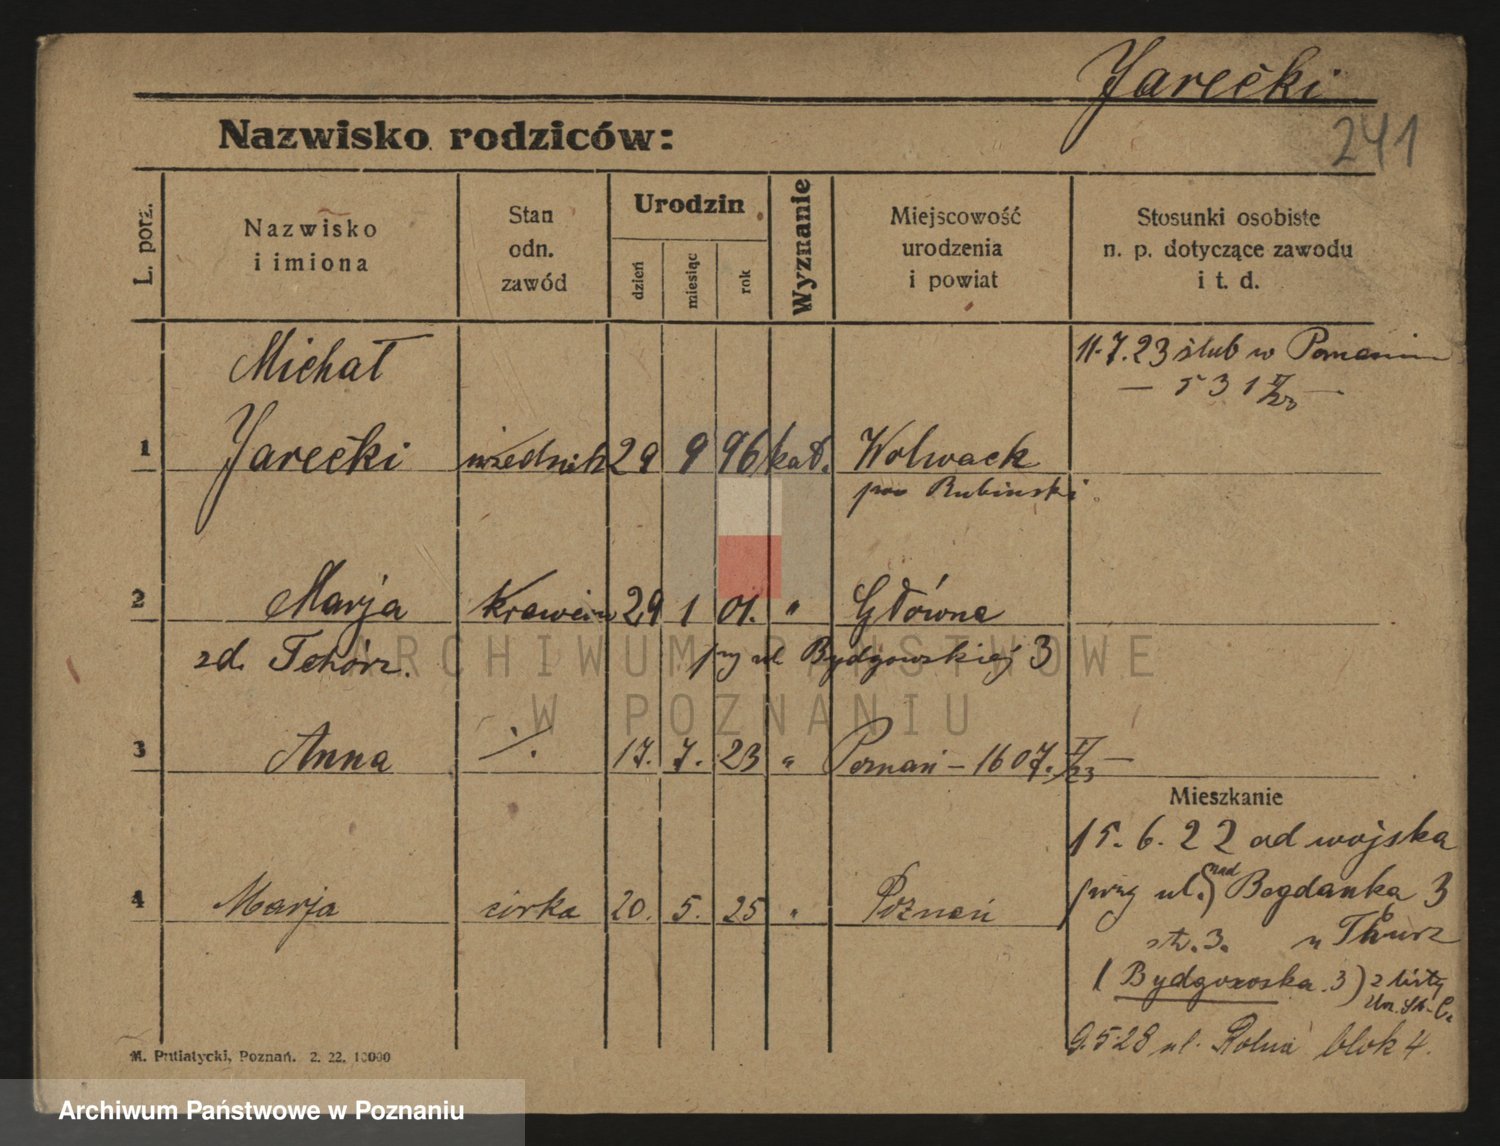 Jarecki
241
Nazwisko rodziców:
L. porz.
Nazwisko
i imiona
Stan
odn.
zawód
Urodzin
dzień
miesiąc
rok
Wyznanie
Miejscowość
urodzenia
i powiat
Stosunki osobiste
n. p. dotyczące zawodu
i t. d.
Michał
11.7.23 ślub w Poznaniu
— 531 II/23 —
1 Jarecki urzednik 29 9 96 kat. Wolwack
pow Rubinski
2 Marja Krawcin 29 1 01. " Główna
zd. Tchórz. przy ul Bydgowskiej 3
3 Anna ./. 17. 7. 23 " Poznań – 1607. II/23 —
Mieszkanie
15. 6. 22 od wojska
przy ul. nad Bogdanka 3
4 Marja córka 20. 5. 25 " Poznań
st. 3. u Thurz
( Bydgowska 3) z listy
9.5.28 ul. Rolna blok 4.
M. Putiatycki, Poznań. 2. 22. 10000
ARCHIWUM PAŃSTWOWE
W POZNANIU
Archiwum Państwowe w Poznaniu